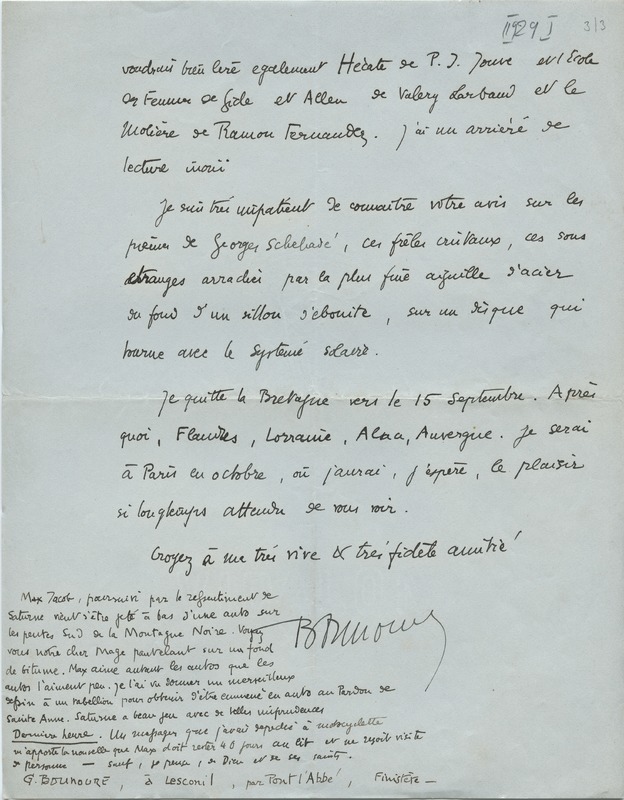 1929 3/3
voudrais bien lire également Hécate de P. J. Jouve et l'Ecole
des Femmes de Gide et Allen de Valery Larbaud et le
Molière de Ramon Fernandez. J'ai un arriéré de
lecture inouï
Je suis très impatient de connaître votre avis sur les
poèmes de Georges Schehadé, ces frêles cristaux, ces sons
étranges arrachés par la plus fine aiguille d'acier
du fond d'un sillon d'ébonite, sur un disque qui
tourne avec le Système solaire.
Je quitte la Bretagne vers le 15 Septembre. Après
quoi, Flandres, Lorraine, Alsace, Auvergne. Je serai
à Paris en octobre, où j'aurai, j'espère, le plaisir
si longtemps attendu de vous voir.
Croyez à ma très vive & très fidèle amitié
GBounoure
Max Jacob, poursuivi par le ressentiment de
Saturne vient d'être jeté à bas d'une auto sur
les pentes Sud de la Montagne Noire. Voyez
vous notre cher Mage pantelant sur un fond
de bitume. Max aime autant les autos que les
autos l'aiment peu. Je l'ai vu donner un merveilleux
dessin à un tabellion pour obtenir d'être emmené en auto au Pardon de
Sainte Anne. Saturne a beau jeu avec de telles imprudences
Dernière heure. Un messager que j'avais dépêché à motocyclette
m'apporte la nouvelle que Max doit rester 40 jours au lit et ne reçoit visite
de personne — sauf, je pense, de Dieu et de ses saints.
G. BOUNOURE, à Lesconil, par Pont l'Abbé, Finistère —